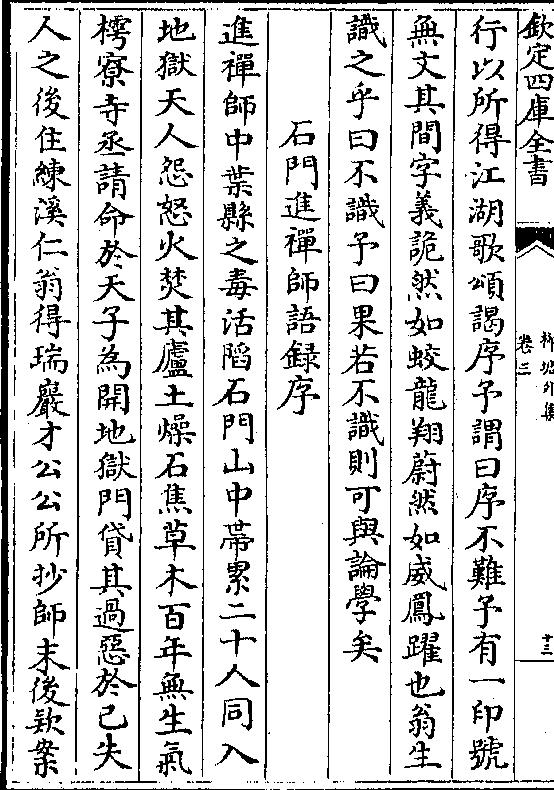 欽定四庫全書
柳塘外集
卷三
十三
行以所得江湖歌頌謁序予謂曰序不難予有一印號
無文其間字義詭然如蛟龍翔蔚然如威鳳躍也翁生
識之乎曰不識予曰果若不識則可與論學矣
石門進禪師語録序
進禪師中葉縣之毒活陷石門山中帶累二十人同入
地獄天人怨怒火焚其廬土燥石焦草木百年無生氣
樗寮寺丞請命於天子為開地獄門貸其過惡於己失
人之後住練溪仁翁得瑞巖才公公所抄師末後欵案